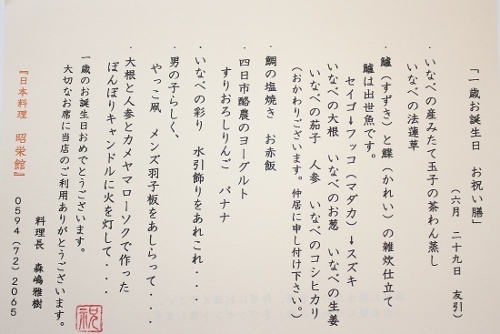 「一歳お誕生日　お祝い膳」
（六月　二十九日　友引）
・いなべの産みたて玉子の茶わん蒸し
いなべの法蓮草
・鱸（すずき）と鰈（かれい）の雑炊仕立て
鱸は出世魚です。
セイゴ→フッコ（マダカ）→スズキ
いなべの大根　いなべのお葱　いなべの生姜
いなべの茄子　人参　いなべのコシヒカリ
（おかわりございます。仲居に申し付け下さい。）
・鯛の塩焼き　お赤飯
・四日市酪農のヨーグルト
すりおろしりんご　バナナ
・いなべの彩り　水引飾りをあれこれ・・・
・男の子らしく、
やっこ凧　メンズ羽子板をあしらって・・・・
・大根と人参とカメヤマローソクで作った
ぼんぼりキャンドルに火を灯して・・・・
一歳のお誕生日おめでとうございます。
大切なお席に当店のご利用ありがとうございます。
料理長　森嶋雅樹
祝
『日本料理　昭栄館』　0594（72）2065